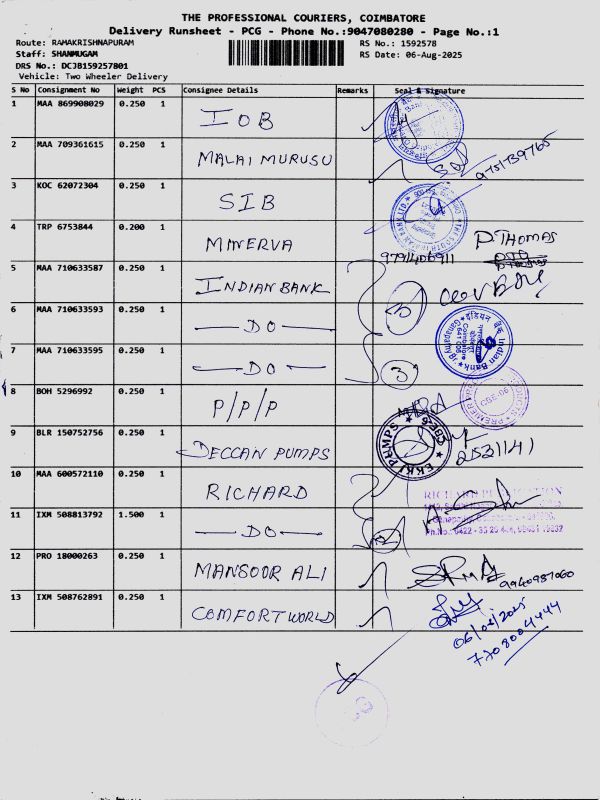 THE PROFESSIONAL COURIERS, COIMBATORE
Delivery Runsheet - PCG - Phone No.:9047080280 - Page No.:1
Route: RAMAKRISHNAPURAM
Staff: SHANMUGAM
DRS No.: DCJB159257801
Vehicle: Two Wheeler Delivery
RS No.: 1592578
RS Date: 06-Aug-2025
S No Consignment No Weight PCS Consignee Details Remarks Seal & Signature
1 MAA 869908029 0.250 1 IOB
2 MAA 709361615 0.250 1 MALAI MURUSU 9751739765
3 KOC 62072304 0.250 1 SIB
4 TRP 6753844 0.200 1 MINERVA P.THOMAS
9791406911
5 MAA 710633587 0.250 1 INDIAN BANK
6 MAA 710633593 0.250 1 —DO— 3
7 MAA 710633595 0.250 1 —DO— 3
8 BOH 5296992 0.250 1 P/P/P
9 BLR 150752756 0.250 1 DECCAN PUMPS
10 MAA 600572110 0.250 1 RICHARD
11 IXM 508813792 1.500 1 —DO—
12 PRO 18000263 0.250 1 MANSOOR ALI 9940987060
13 IXM 508762891 0.250 1 COMFORT WORLD
06/08/2025
7708004444
Indian Bank
Ganapathy
Coimbatore
इंडियन बैंक
EKKI PUMPS
CBE-6
CBE-06